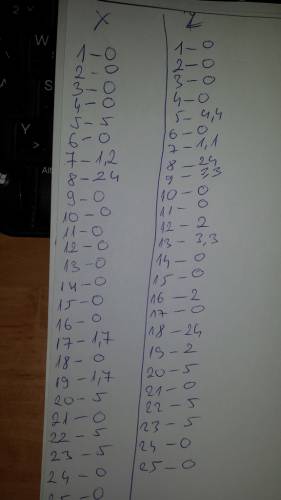 X
1-0
2-0
3-0
4-0
5-5
6-0
7-1,2
8-24
9-0
10-0
11-0
12-0
13-0
14-0
15-0
16-0
17-1,7
18-0
19-1,7
20-5
21-0
22-5
23-5
24-0
25-0
Z
1-0
2-0
3-0
4-0
5-4,4
6-0
7-1,1
8-24
9-3,3
10-0
11-0
12-2
13-3,3
14-0
15-0
16-2
17-0
18-24
19-2
20-5
21-0
22-5
23-5
24-0
25-0
W
S
Y
>
Alt